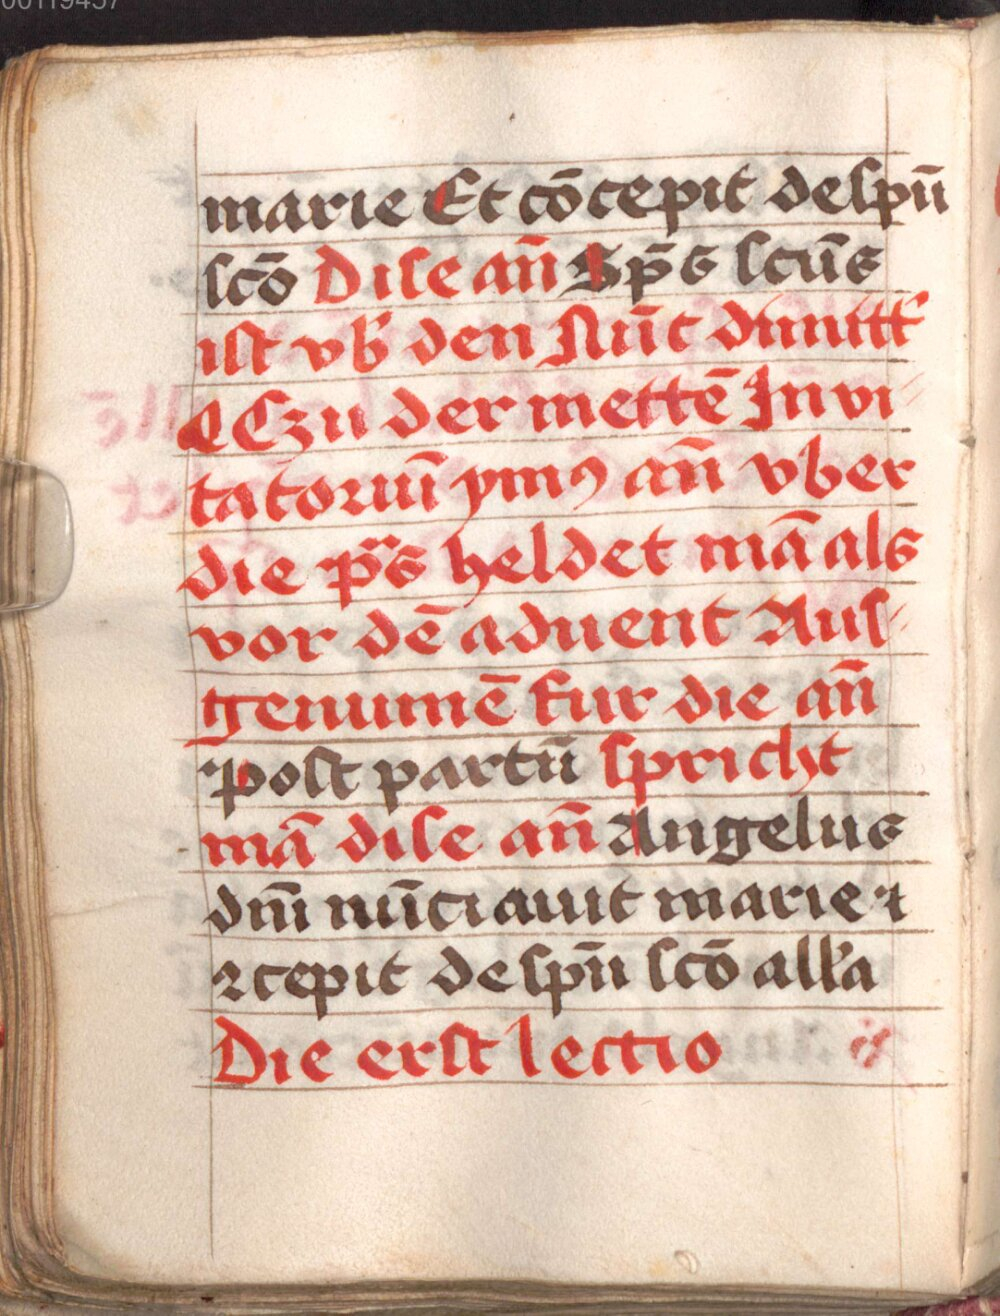 00119457
marie Et cōcepit de spū
scō Dise añ Sp̄s scūs
ist vb̕ den Nūc dimitt̕
Czu der mettē Invi⸗
tatoriūı ymꝯ añ vber
die p̄s heldet mā als
vor dē aduent Aus⸗
genumē fur die añ
Post partū spricht
mā dise añ Angelus
dn̄i nūciauit marie ⁊
ꝯcepit de spū scō all̕a
Die erst lectio